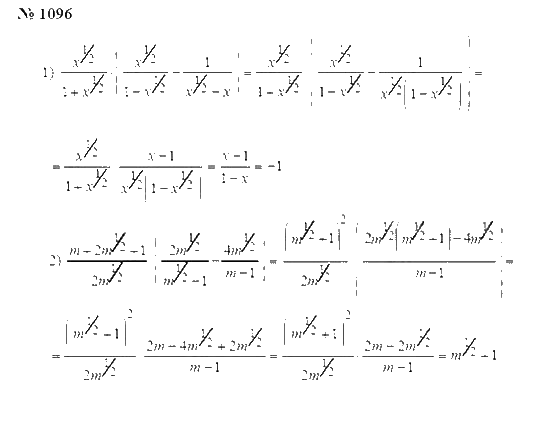 № 1096
1) x^{1/2}/(1 + x^{1/2}) · (x^{1/2}/(1 − x^{1/2}) − 1/(x^{1/2} − x)) = x^{1/2}/(1 + x^{1/2}) (x^{1/2}/(1 − x^{1/2}) − 1/(x^{1/2}(1 − x^{1/2}))) =
= x^{1/2}/(1 + x^{1/2}) · (x − 1)/(x^{1/2}(1 − x^{1/2})) = (x − 1)/(1 − x) = −1
2) (m + 2m^{1/2} + 1)/(2m^{1/2}) (2m^{1/2}/(m^{1/2} − 1) − 4m^{1/2}/(m − 1)) = (m^{1/2} + 1)^2/(2m^{1/2}) (2m^{1/2}(m^{1/2} + 1) − 4m^{1/2})/(m − 1) =
= (m^{1/2} + 1)^2/(2m^{1/2}) · (2m − 4m^{1/2} + 2m^{1/2})/(m − 1) = (m^{1/2} + 1)^2/(2m^{1/2}) · (2m − 2m^{1/2})/(m − 1) = m^{1/2} + 1